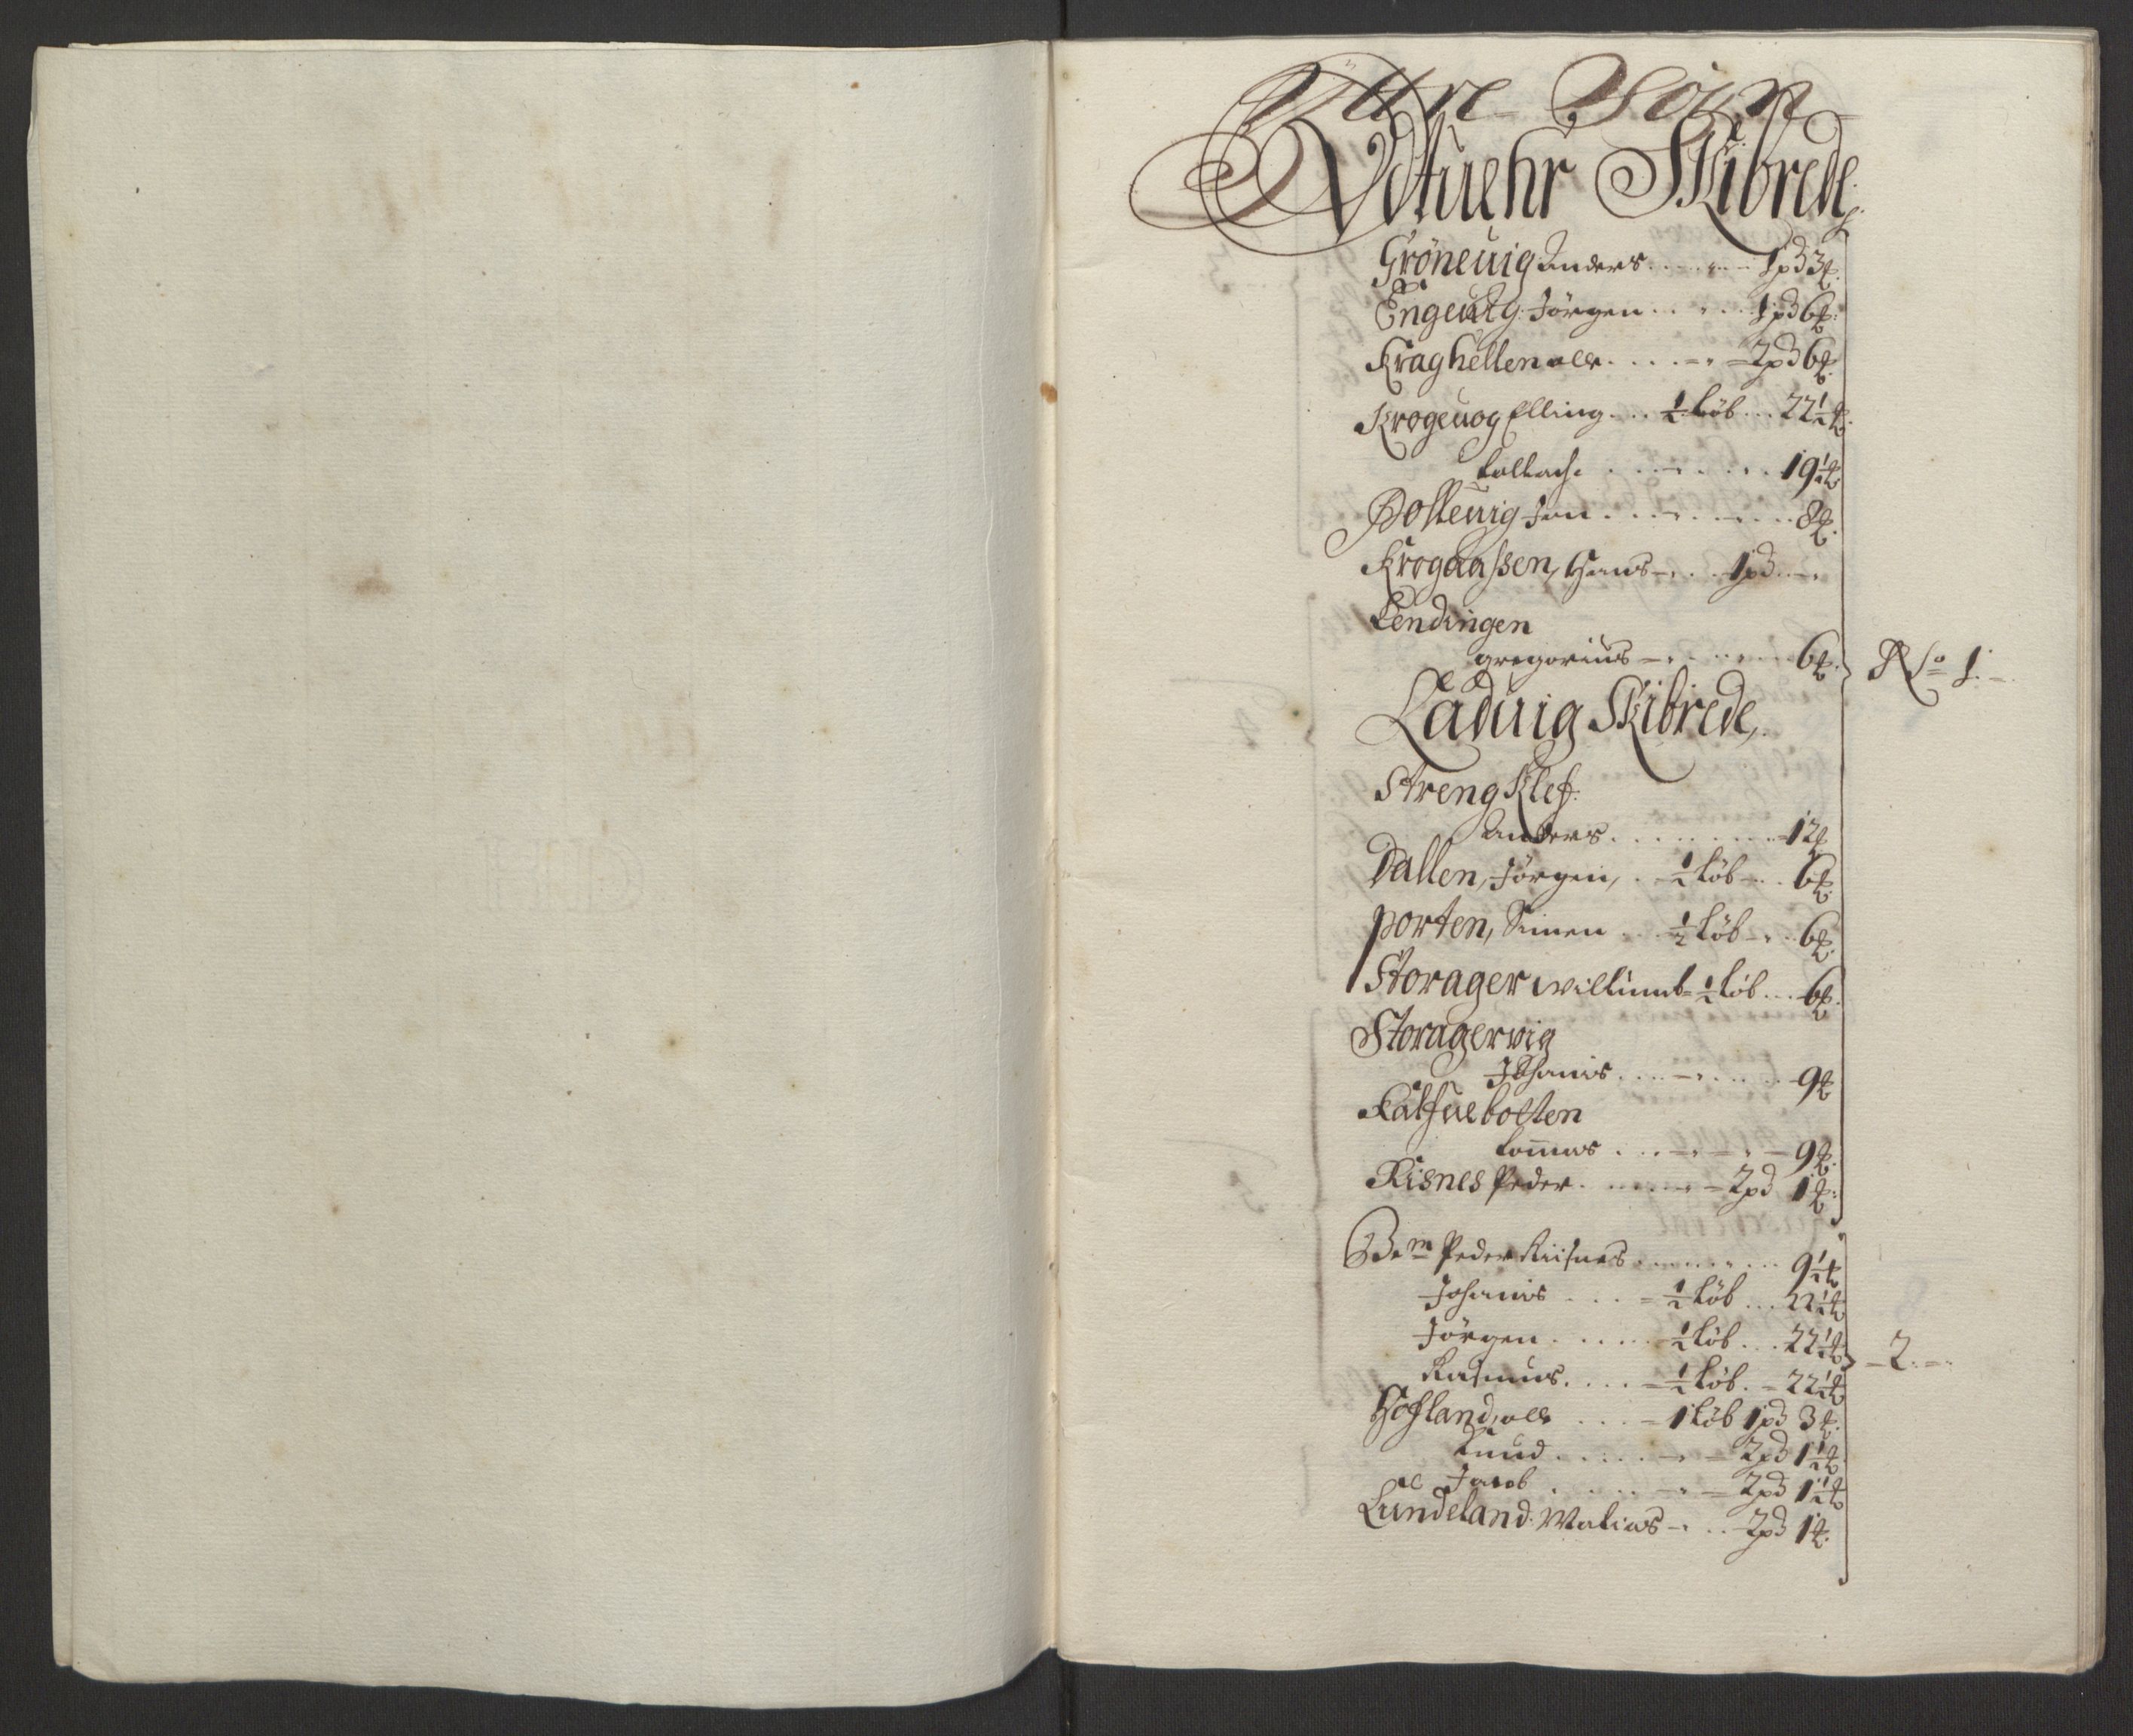 Yttre Sogn
Udtuehr Skibrede,
Gröneuig Anders . . . 1 pd 3 ℔.
Engeuig: Jörgen . . . 1 pd 6 ℔:
Kraghellen olle . . . . 2 pd 6 ℔.
Krogeuog Elling . . . ½ Löb . . . 22½ ℔.
. . . . . 19½ ℔
Bosteuig Jon . . . . . 8 ℔.
Krogaassen, Hans . . . 1 pd . .
Lendingen
gregorius . . . . . 6 ℔.
No 1.
Laduig Skibrede,
Streng Klef:
Anders . . . . . 12 ℔
Dallen, Jörgen, . . ½ Löb . . 6 ℔.
porten, Simen . . . ½ Löb . . 6 ℔.
Storager willumb ½ Löb . . . 6 ℔.
Storagervig
Johanis . . . . . 9 ℔
Kalfuebotten
Tommas . . . . . 9 ℔.
Risnes Peder . . . . 2 pd 1 ℔:
Bem Peder Riisnes . . . . . 9½ ℔
Johanis . . . ½ Löb . . . 22½ ℔
Jörgen . . . . . ½ Löb . . . 22½ ℔
2.
Rasmus . . . . ½ Löb . 22½ ℔
Hofland, olle . . . 1 Löb 1 pd 3 ℔.
Knud . . . . . 2 pd 1½ ℔
Jacob . . . . . 2 pd 1½ ℔
Lundeland: Matias . . . 2 pd 1 ℔.